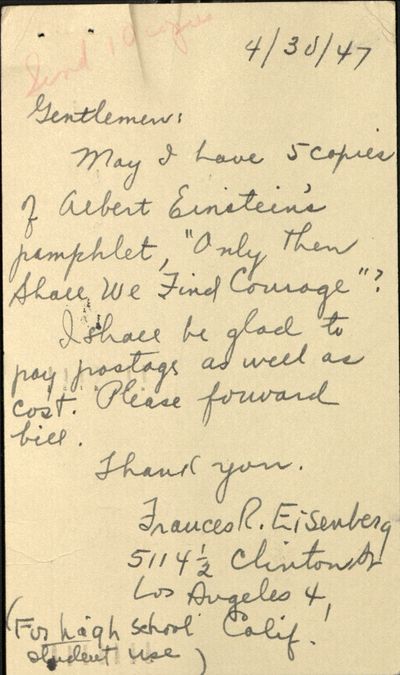 Send 10 copies
4/30/47
Gentlemen:
May I have 5 copies
of Albert Einstein's
pamphlet, "Only Then
Shall We Find Courage"?
I shall be glad to
pay postage as well as
cost. Please forward
bill.
Thank you.
Frances R. Eisenberg
5114 ½ Clinton St
Los Angeles 4,
Calif.
(For high school
student use)